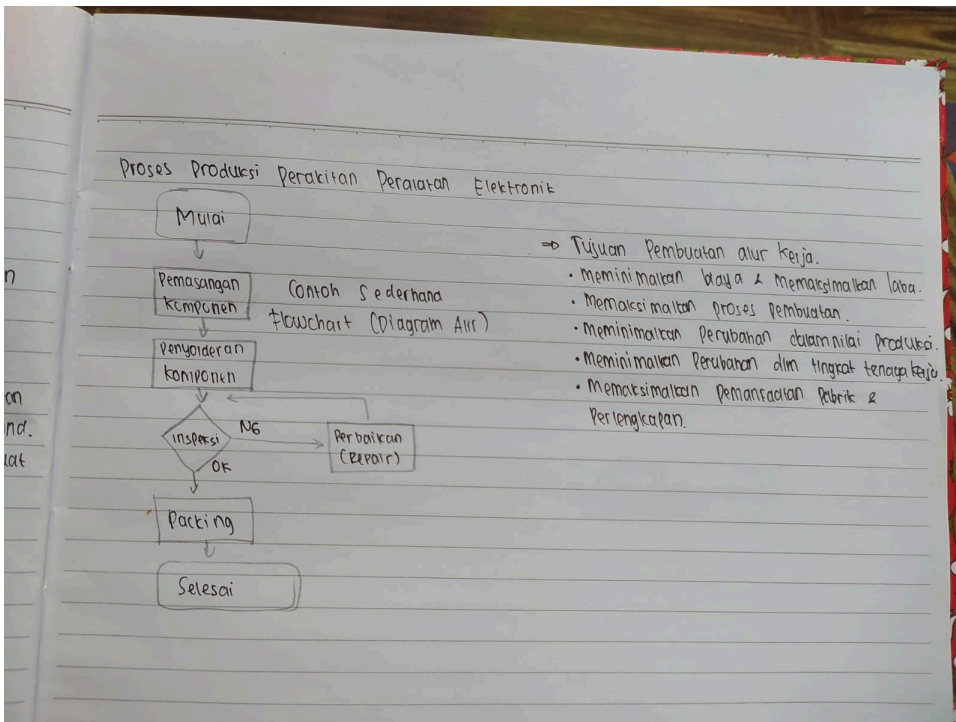 n
an
nd.
uat
Proses Produksi Perakitan Peralatan Elektronik
Mulai
Pemasangan
Komponen
Contoh Sederhana
Flowchart (Diagram Alir)
Penyolderan
Komponen
Inspeksi
NG
OK
Perbaikan
(Repair)
Packing
Selesai
⇒ Tujuan Pembuatan alur kerja.
• meminimalkan biaya & memaksimalkan laba.
• Memaksimalkan proses pembuatan.
• meminimalkan Perubahan dalam nilai Produksi.
• meminimalkan Perubahan dlm tingkat tenaga kerja.
• Memaksimalkan Pemanfaatan Pabrik &
Perlengkapan.